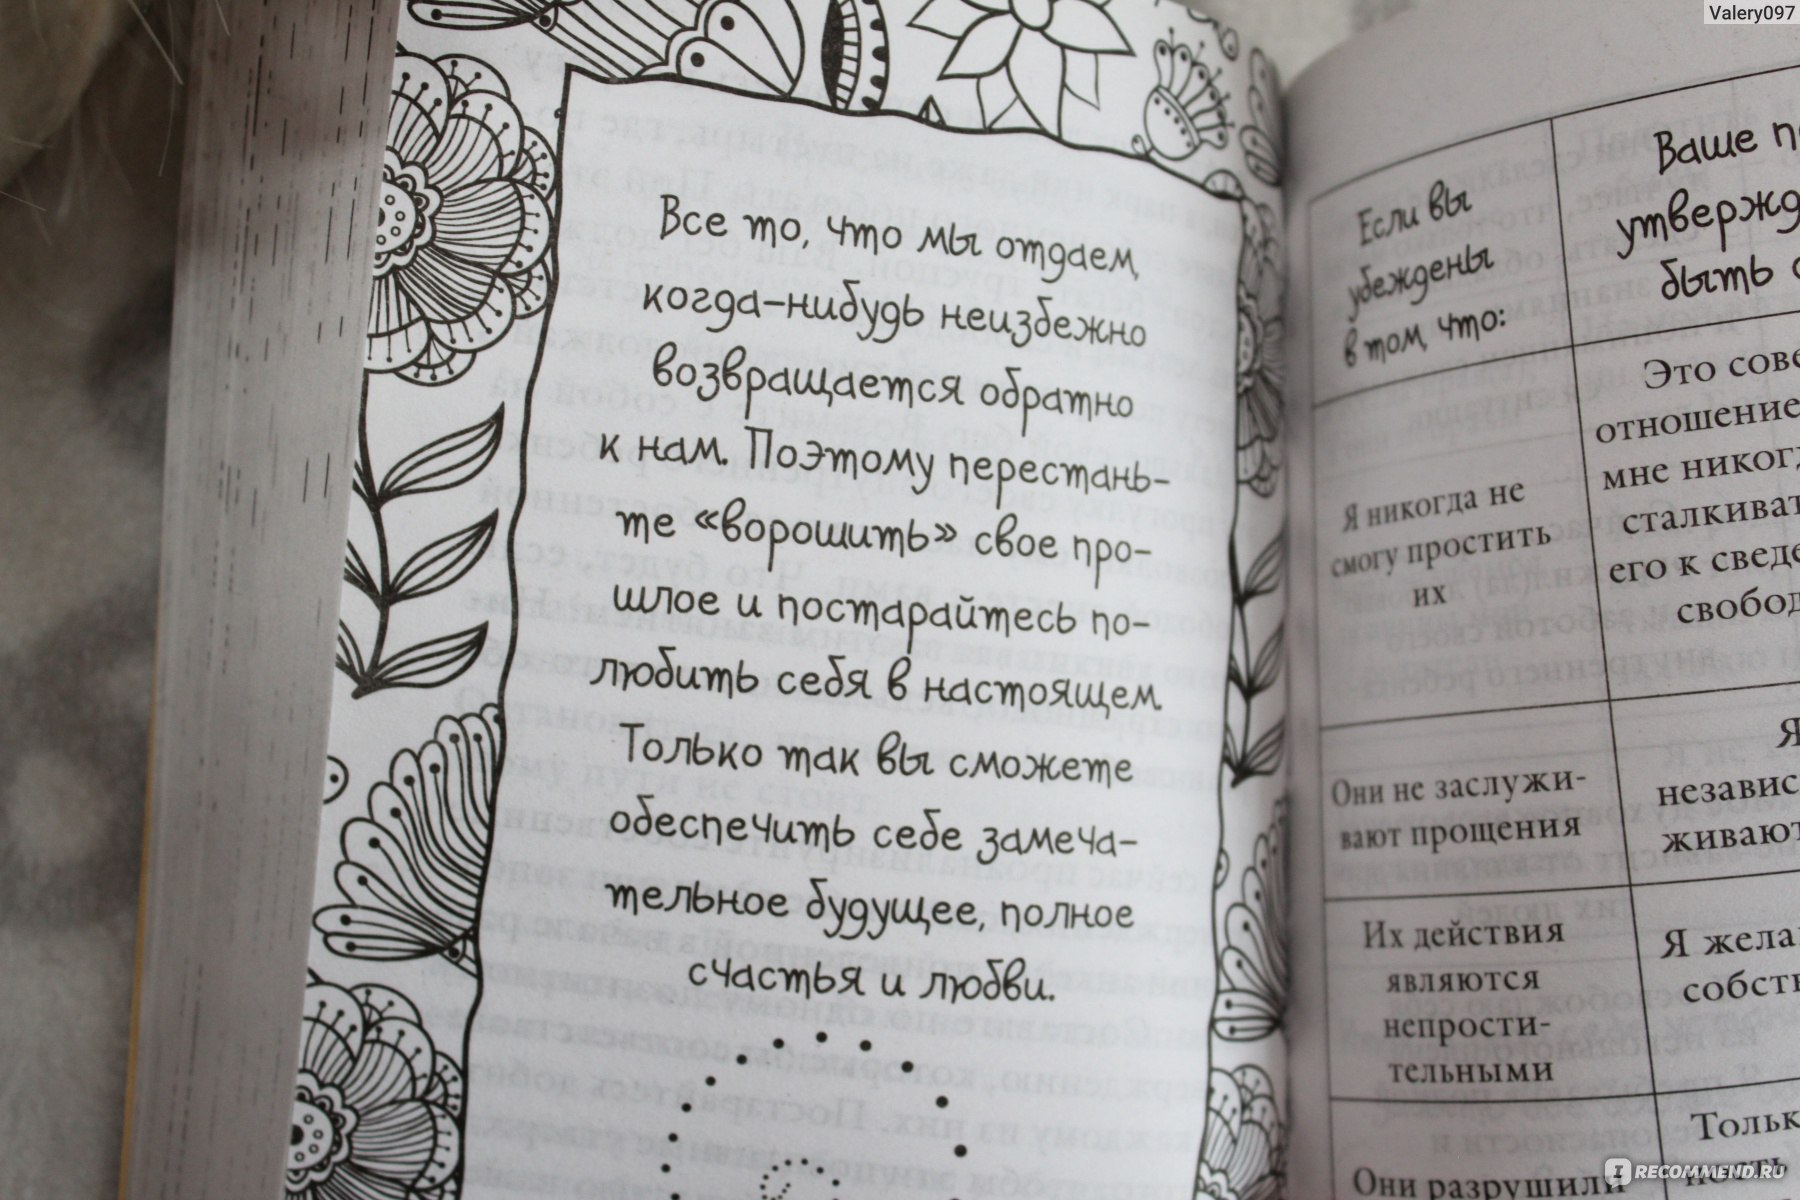 Valery097
Все то, что мы отдаем,
когда-нибудь неизбежно
возвращается обратно
к нам. Поэтому перестань-
те «ворошить» свое про-
шлое и постарайтесь по-
любить себя в настоящем.
Только так вы сможете
обеспечить себе замеча-
тельное будущее, полное
счастья и любви.
Если вы
убеждены
в том, что:
Ваше
утвержд
быть
Я никогда не
смогу простить
их
Это сове
отношение
мне никог
сталкиват
его к сведе
свобод
Они не заслужи-
вают прощения
Я
независ
живают
Их действия
являются
непрости-
тельными
Я жела
собств
Они разрушили
Тольк
IRECOMMEND.RU